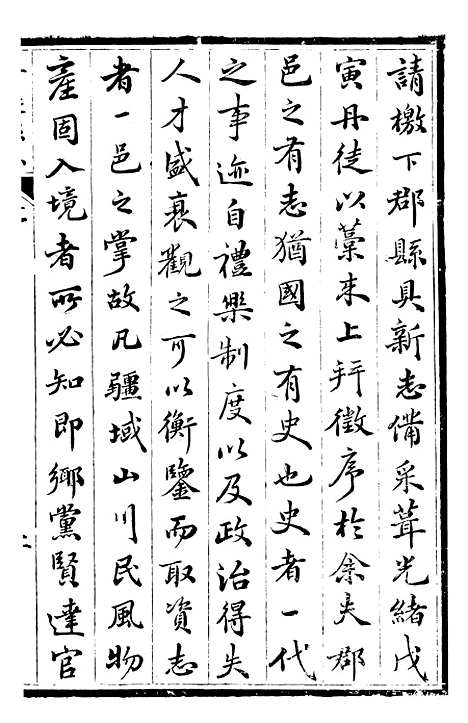 請檄下郡縣具新志備采葺光緒戊
寅丹徒以藁來上并徵序於余夫郡
邑之有志猶國之有史也史者一代
之事迹自禮樂制度以及政治得失
人才盛衰觀之可以衡鑒而取資志
者一邑之掌故凡疆域山川民風物
產固入境者所必知即鄉黨賢達官